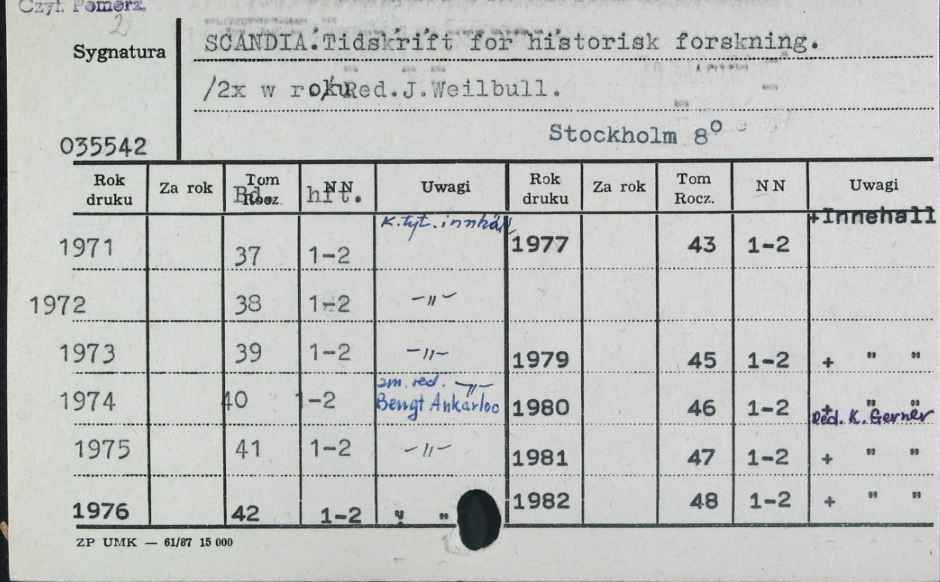 Czyt. Pomerz.
2
Sygnatura
SCANDIA.Tidskrift for historisk forskning.
/2x w roku/Red.J.Weilbull.
Stockholm 8°
035542
Rok druku Za rok Tom Rocz. Bd. NN hft. Uwagi Rok druku Za rok Tom Rocz. NN Uwagi
1971 37 1-2 K.tyt. innhåll 1977 43 1-2 +Innehall
1972 38 1-2 -"-
1973 39 1-2 -"- 1979 45 1-2 + " "
1974 40 1-2 zm. red. -"- Bengt Ankarloo 1980 46 1-2 + " " Red. K. Gerner
1975 41 1-2 -"- 1981 47 1-2 + " "
1976 42 1-2 " " 1982 48 1-2 + " "
ZP UMK — 61/87 15 000